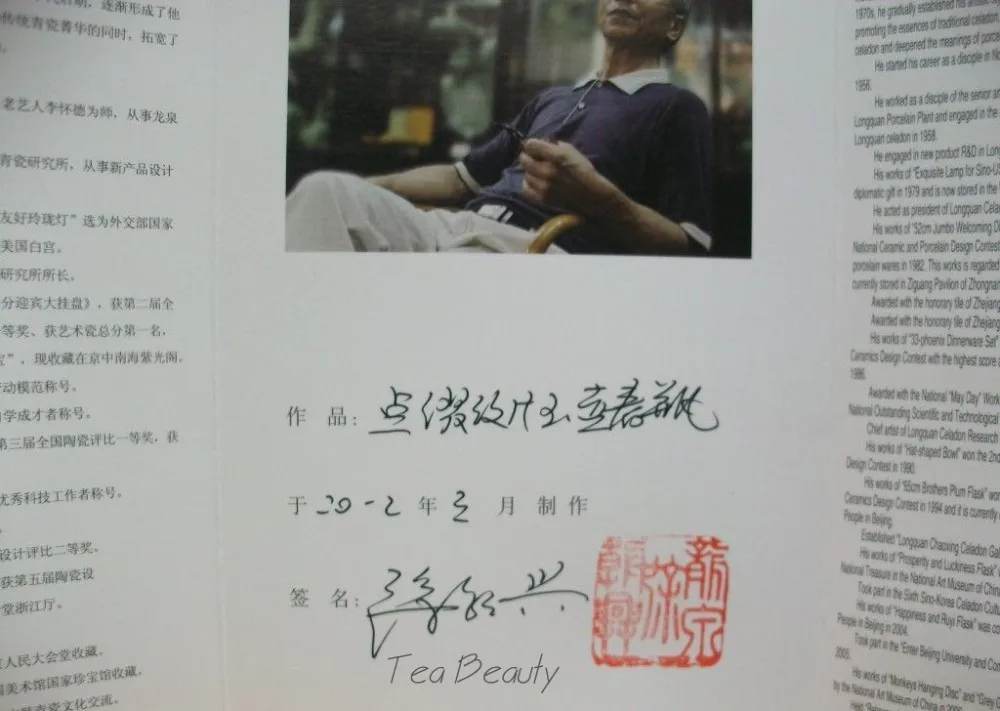 逐渐形成了他
传统青瓷菁华的同时，拓宽了
老艺人李怀德为师，从事龙泉
青瓷研究所，从事新产品设计
友好玲珑灯”选为外交部国家
美国白宫。
研究所所长。
分迎宾大挂盘》，获第二届全
等奖、获艺术瓷总分第一名，
宝”，现收藏在京中南海紫光阁。
劳动模范称号。
自学成才者称号。
第三届全国陶瓷评比一等奖，获
优秀科技工作者称号。
设计评比二等奖，
获第五届陶瓷设
堂浙江厅。
人民大会堂收藏。
国美术馆国家珍宝馆收藏。
青瓷文化交流。
作 品：点缀纹片玉壶春瓶
于 二0一二 年 月 制 作
签 名：徐朝兴
龍泉徐朝興
Tea Beauty
1970s, he gradually established his
promoting the essences of traditional celadon
celadon and deepened the meanings of
He started his career as a disciple in
1956.
He worked as a disciple of the senior
Longquan Porcelain Plant and engaged in the
Longquan celadon in 1958.
He engaged in new product R&D in
His works of "Exquisite Lamp for
diplomatic gift in 1979 and is now stored in the
He acted as president of Longquan
His works of "52cm Jumbo Welcoming
National Ceramic and Porcelain Design Contest
porcelain wares in 1982. This works is regarded
currently stored in Ziguang Pavilion of
Awarded with the honorary tile of
Awarded with the honorary tile of
His works of "33-phoenix Dinnerware Set"
Ceramics Design Contest with the highest score
1986.
Awarded with the National "May Day"
National Outstanding Scientific and Technological
Chief artist of Longquan Celadon Research
His works of "Hat-shaped Bowl" won the 2nd
Design Contest in 1990.
His works of "55cm Brothers Plum Flask"
Ceramics Design Contest in 1994 and it is currently
People in Beijing.
Established "Longquan Chaoxing Celadon
His works of "Prosperity and Luckiness Flask"
National Treasure in the National Art Museum of
Took part in the Sixth Sino-Korea Celadon
His works of "Happiness and Ruyi Flask" was
People in Beijing in 2004.
Took part in the "Enter Beijing University and
2005.
His works of "Monkeys Hanging Disc" and "Grey
by the National Art Museum of China in